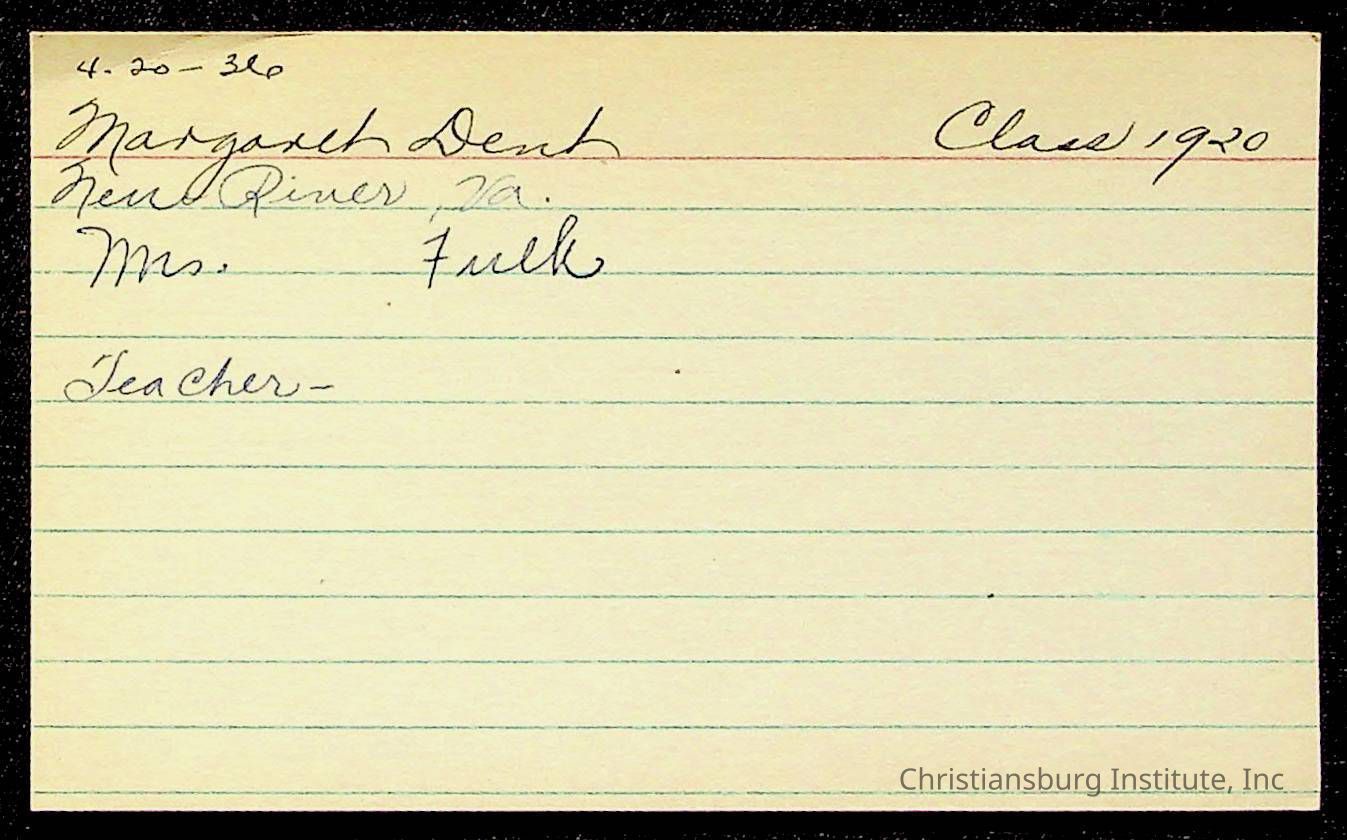 4-20-36
Margaret Dent Class 1920
New River, Va.
Mrs. Fulk
Teacher-
Christiansburg Institute, Inc